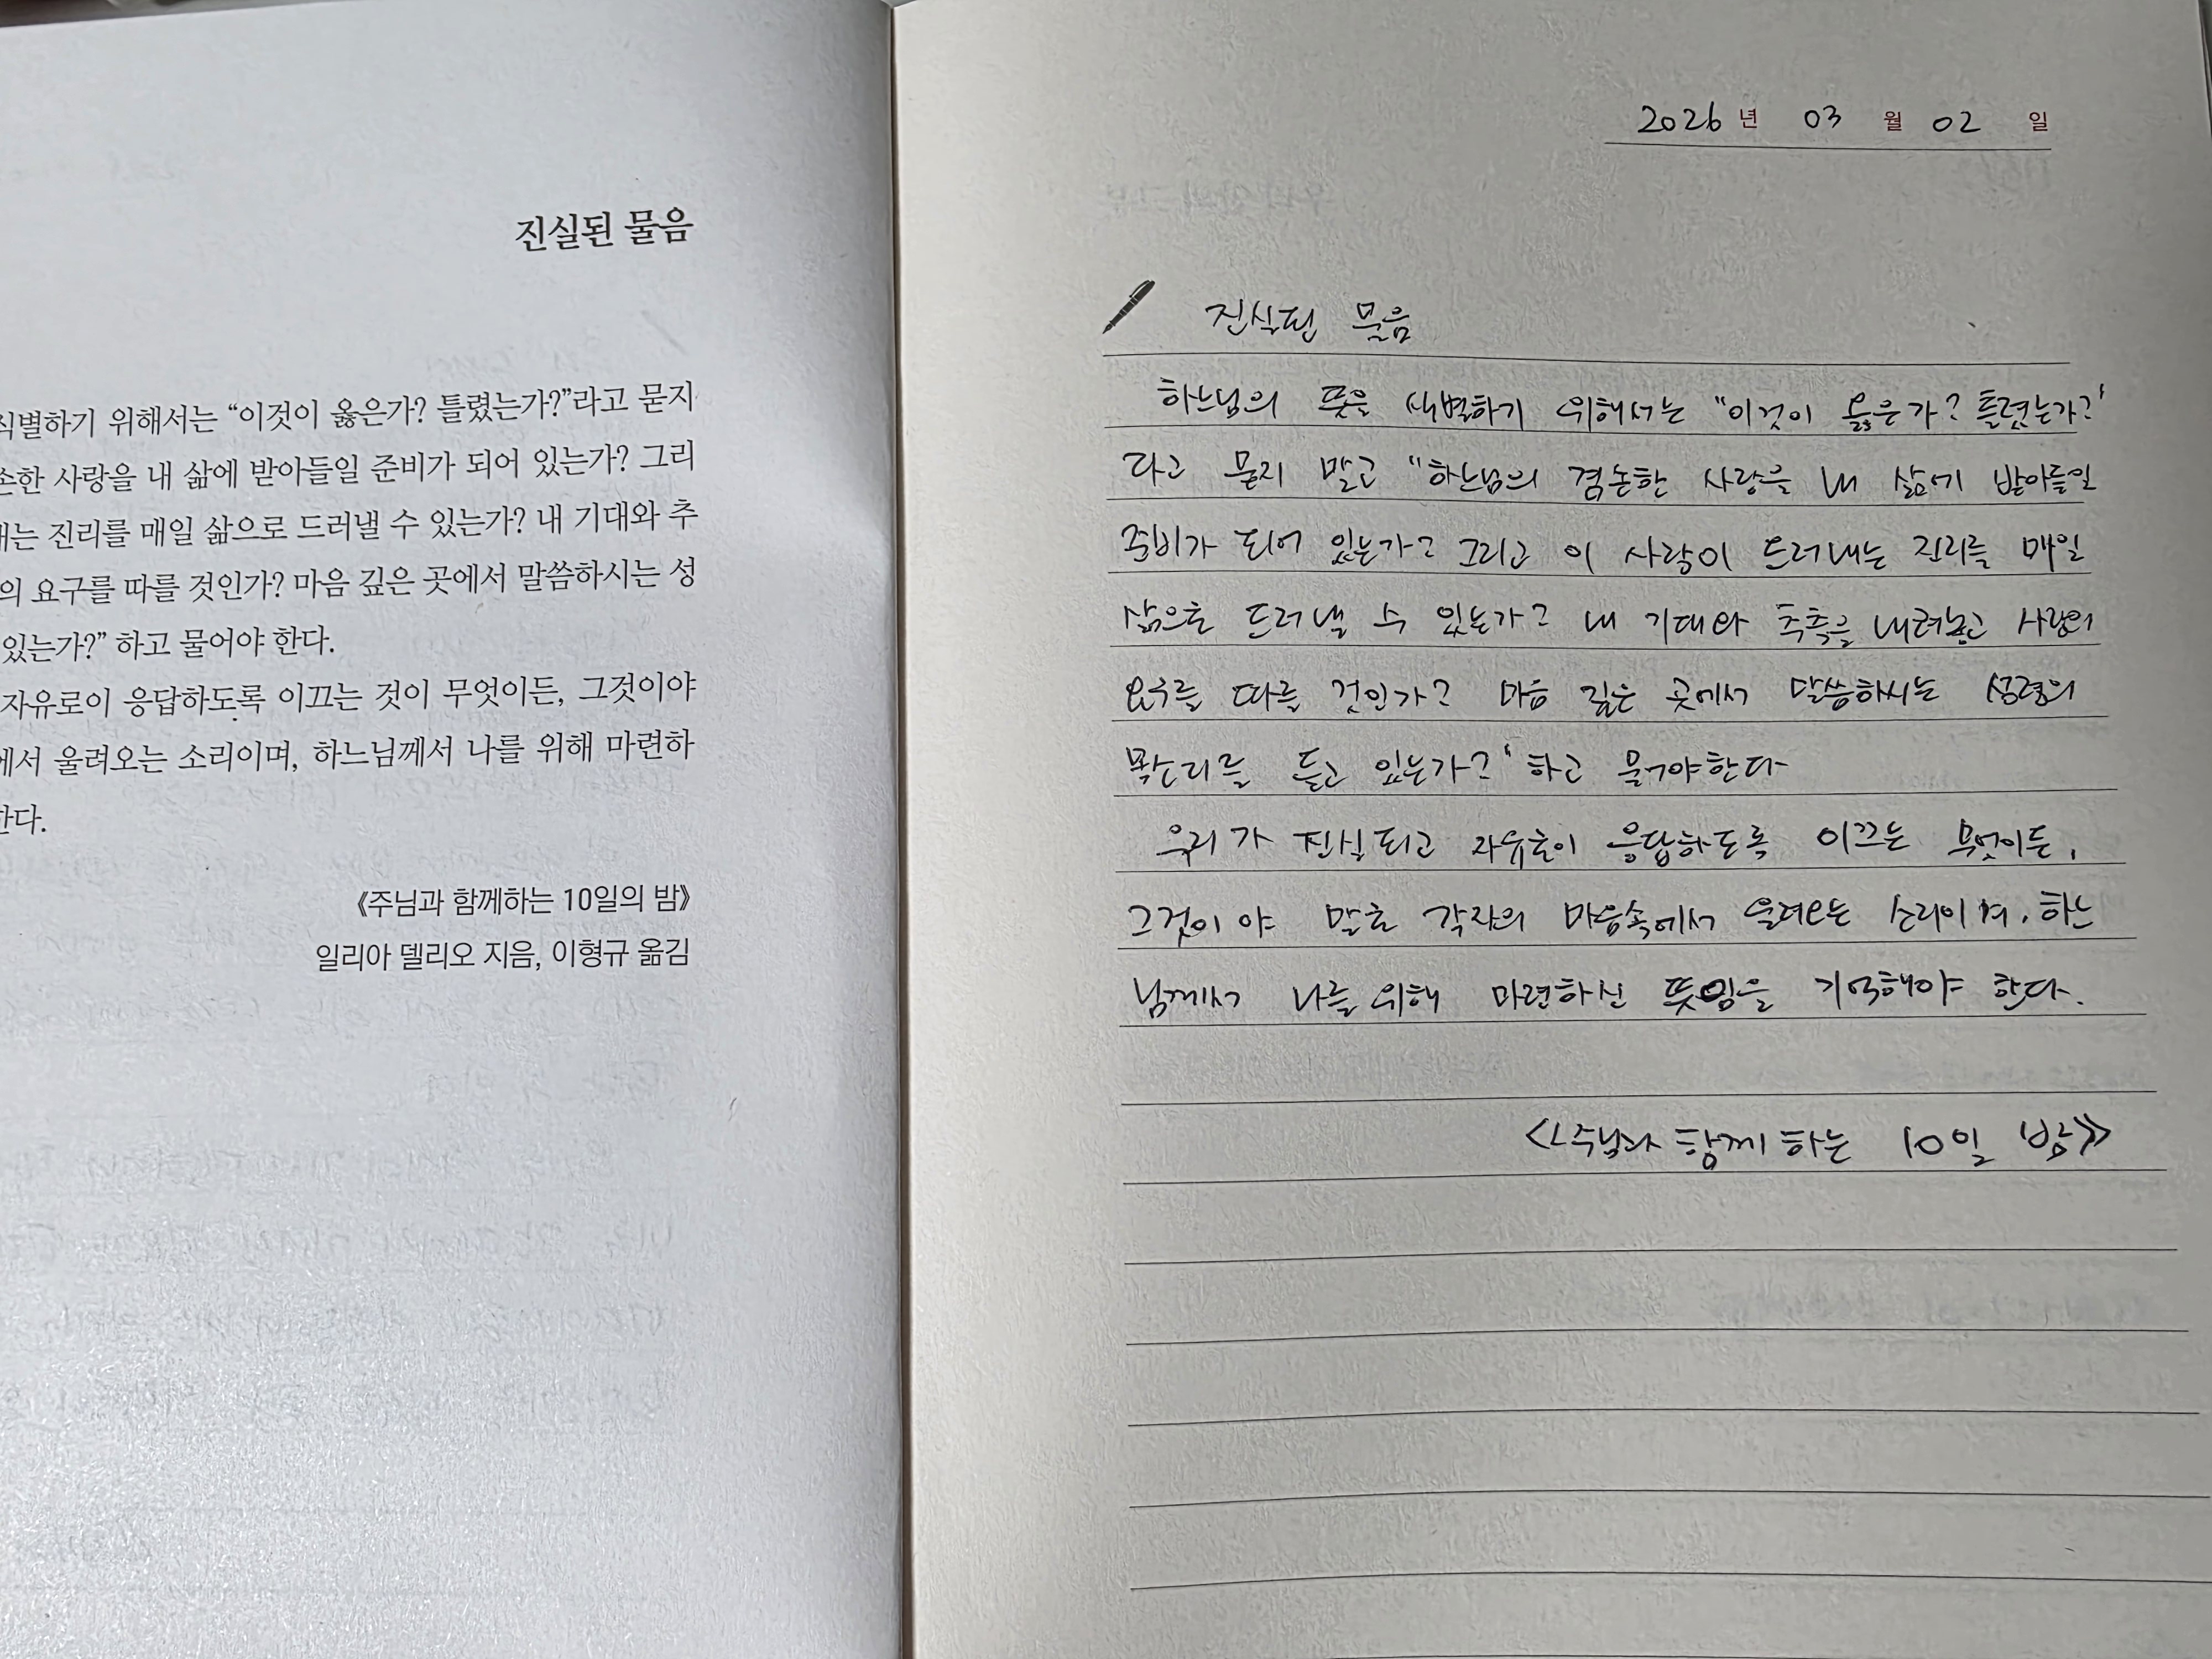 진실된 물음
식별하기 위해서는 “이것이 옳은가? 틀렸는가?”라고 묻지
손한 사랑을 내 삶에 받아들일 준비가 되어 있는가? 그리
내는 진리를 매일 삶으로 드러낼 수 있는가? 내 기대와 추
의 요구를 따를 것인가? 마음 깊은 곳에서 말씀하시는 성
있는가?” 하고 물어야 한다.
자유로이 응답하도록 이끄는 것이 무엇이든, 그것이야
에서 울려오는 소리이며, 하느님께서 나를 위해 마련하
한다.
《주님과 함께하는 10일의 밤》
일리아 델리오 지음, 이형규 옮김
2026년 03월 02일
진실된 물음
하느님의 뜻을 식별하기 위해서는 "이것이 옳은가? 틀렸는가?"
라고 묻지 말고 "하느님의 겸손한 사랑을 내 삶에 받아들일
준비가 되어 있는가? 그리고 이 사랑이 드러내는 진리를 매일
삶으로 드러낼 수 있는가? 내 기대와 추측을 내려놓고 사랑의
요구를 따를 것인가? 마음 깊은 곳에서 말씀하시는 성령의
목소리를 듣고 있는가?" 하고 물어야한다
우리가 진실되고 자유로이 응답하도록 이끄는 무엇이든,
그것이야 말로 각자의 마음속에서 울려오는 소리이며, 하느
님께서 나를 위해 마련하신 뜻임을 기억해야 한다.
《주님과 함께하는 10일 밤》